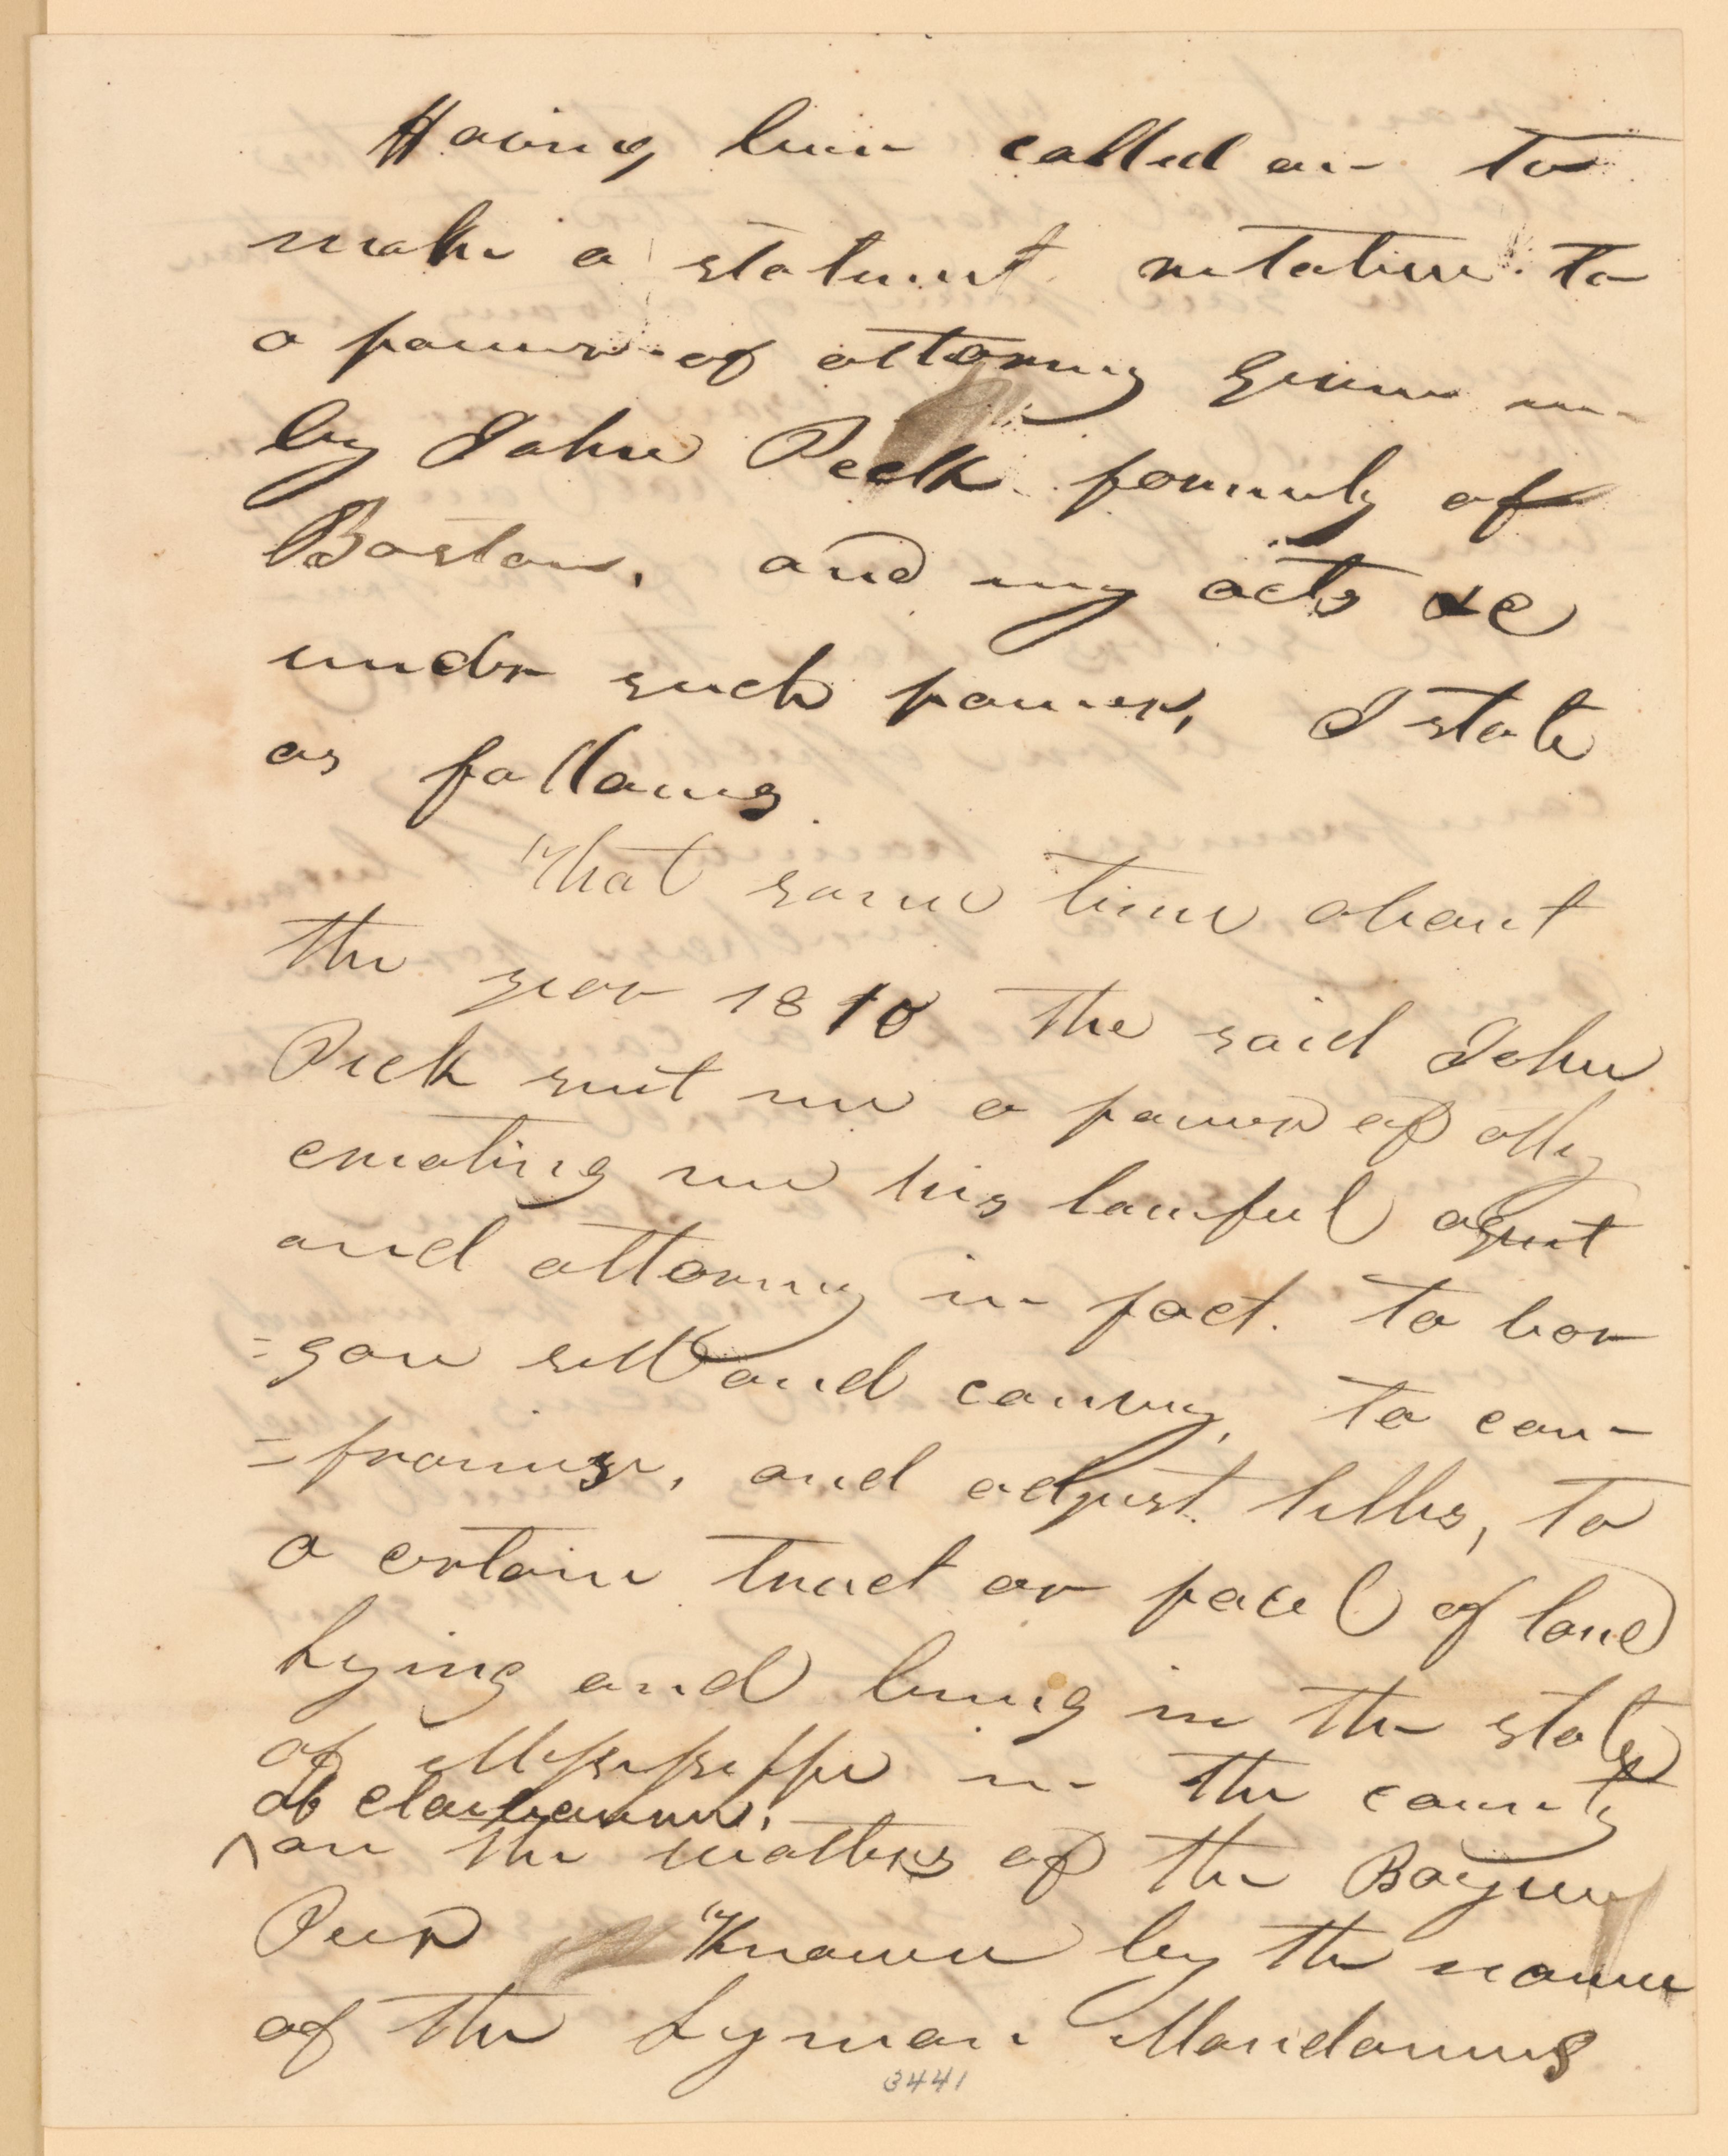 Having been called on to
make a statement relative to
a power of attorney given me
by John Peck formerly of
Boston, and my acts &c
under such power, I state
as follows.
That some time about
the year 1810 the said John
Peck sent me a power of atty
creating me his lawful agent
and attorney in fact. to bar
=gan sell and convey, to com-
=promise, and adjust titles, to
a certain tract or pacel of land
Lying and being in the state
of Missisippi in the county
of Claibourne,
^ on the watters of the Bayeu
Peir Known by the name
of the Lyman Mandamus
3441